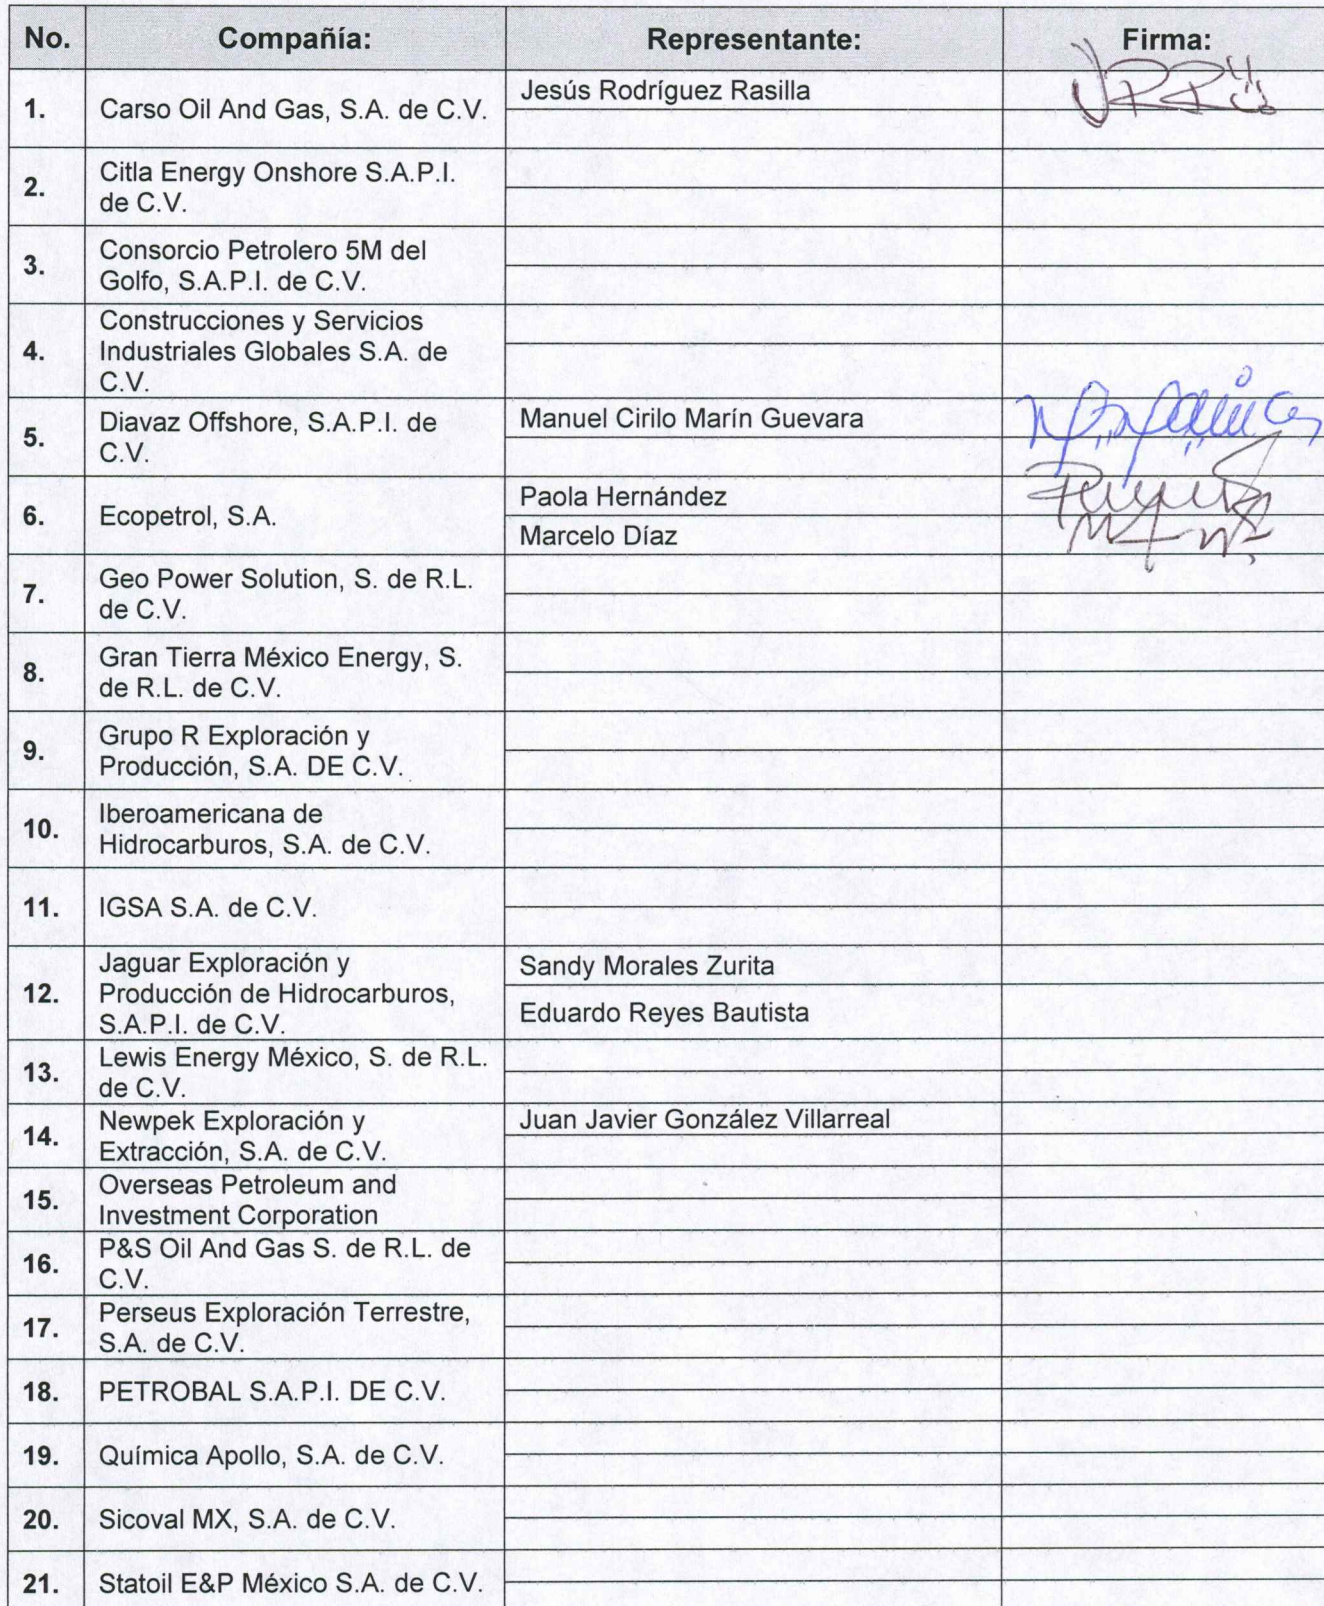 No. Compañía: Representante: Firma:
1. Carso Oil And Gas, S.A. de C.V. Jesús Rodríguez Rasilla
2. Citla Energy Onshore S.A.P.I.
de C.V.
3. Consorcio Petrolero 5M del
Golfo, S.A.P.I. de C.V.
4. Construcciones y Servicios
Industriales Globales S.A. de
C.V.
5. Diavaz Offshore, S.A.P.I. de
C.V.
Manuel Cirilo Marín Guevara
6. Ecopetrol, S.A.
Paola Hernández
Marcelo Díaz
7. Geo Power Solution, S. de R.L.
de C.V.
8. Gran Tierra México Energy, S.
de R.L. de C.V.
9. Grupo R Exploración y
Producción, S.A. DE C.V.
10. Iberoamericana de
Hidrocarburos, S.A. de C.V.
11. IGSA S.A. de C.V.
12. Jaguar Exploración y
Producción de Hidrocarburos,
S.A.P.I. de C.V.
Sandy Morales Zurita
Eduardo Reyes Bautista
13. Lewis Energy México, S. de R.L.
de C.V.
14. Newpek Exploración y
Extracción, S.A. de C.V.
Juan Javier González Villarreal
15. Overseas Petroleum and
Investment Corporation
16. P&S Oil And Gas S. de R.L. de
C.V.
17. Perseus Exploración Terrestre,
S.A. de C.V.
18. PETROBAL S.A.P.I. DE C.V.
19. Química Apollo, S.A. de C.V.
20. Sicoval MX, S.A. de C.V.
21. Statoil E&P México S.A. de C.V.